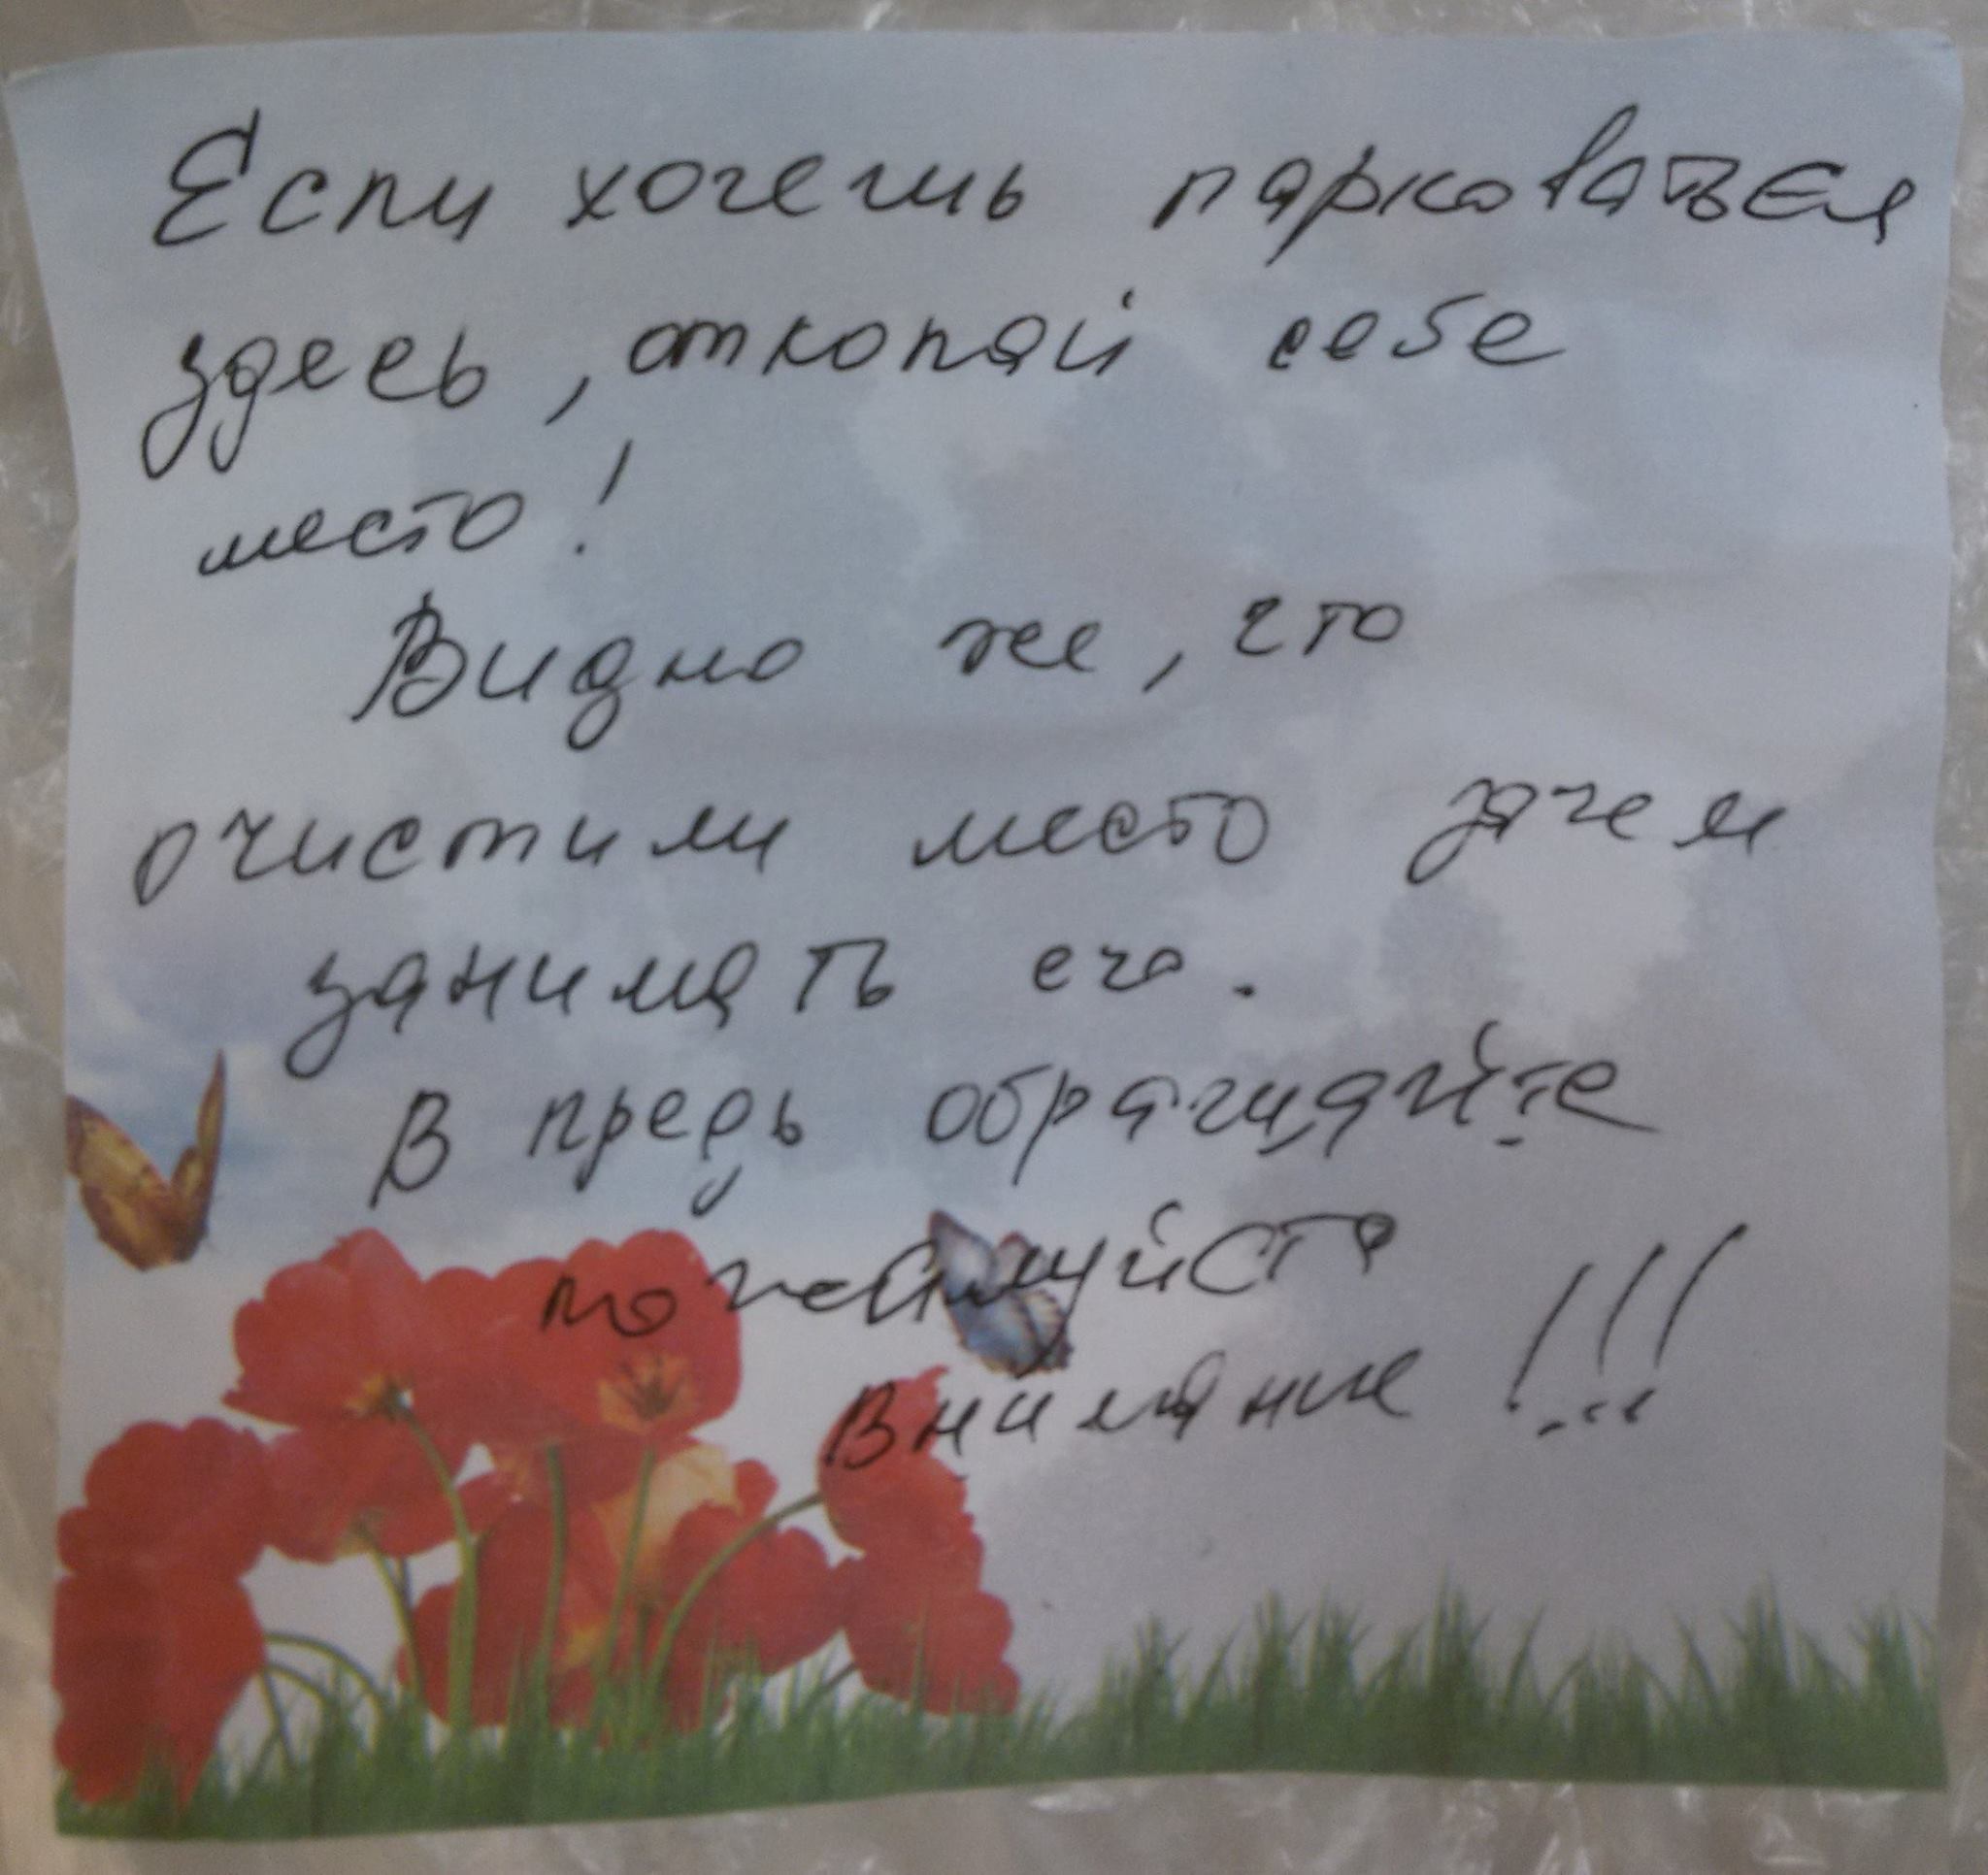 Если хочешь парковаться
здесь, откопай себе
место!
Видно же, что
очистили место зачем
занимать его.
В предь обращайте
пожалуйста
внимание !!!